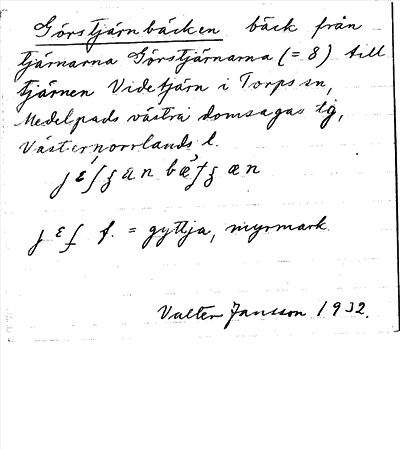 Görstjärnbäcken bäck från
tjärnarna Görstjärnarna (= 8) till
tjärnen Videtjärn i Torps sn,
Medelpads västra domsagas tg,
Västernorrlands l.
f. = gyttja, myrmark
Valter Jansson 1932.